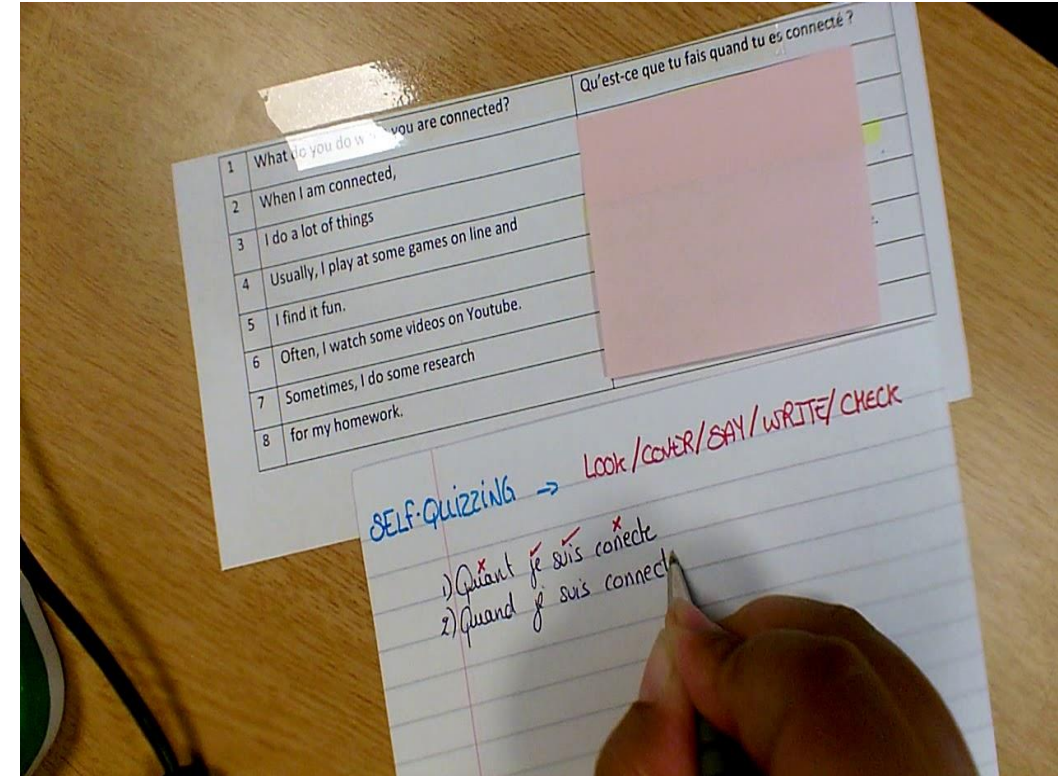 1 What do you do w you are connected? Qu'est-ce que tu fais quand tu es connecté ?
2 When I am connected,
3 I do a lot of things
4 Usually, I play at some games on line and
5 I find it fun.
6 Often, I watch some videos on Youtube.
7 Sometimes, I do some research
8 for my homework.
SELF-QUIZZING → LOOK/COVER/SAY/WRITE/CHECK
1) Quant je suis conecte
2) Quand je suis connect